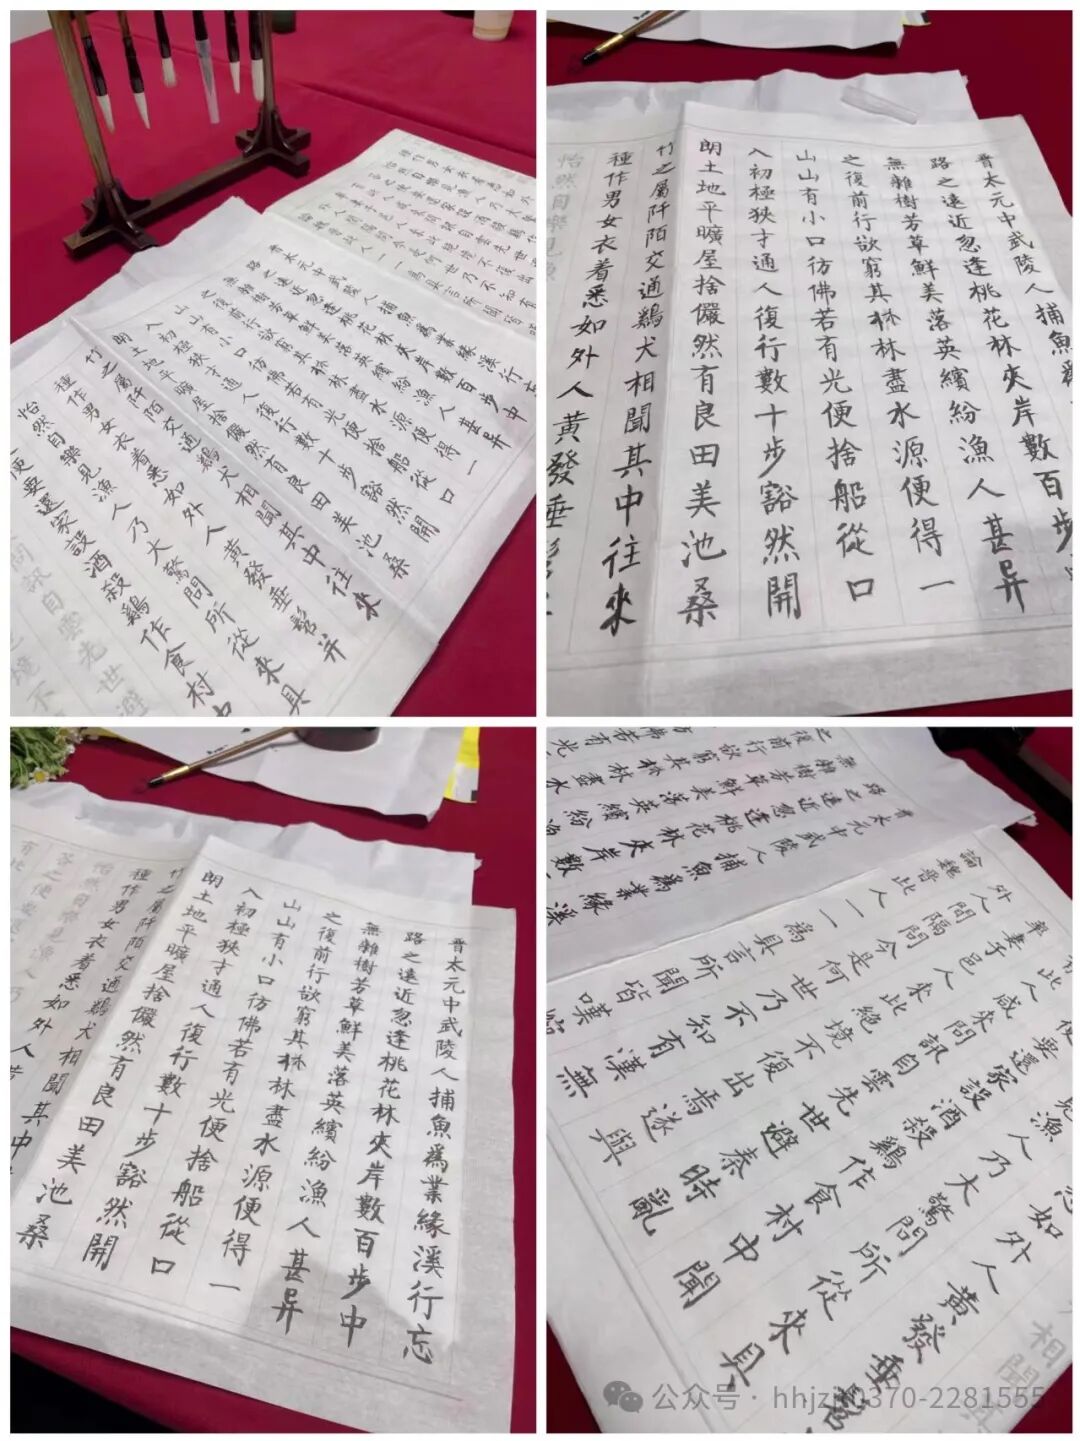 晉太元中武陵人捕魚為業緣溪行
路之遠近忽逢桃花林夾岸數百步中
無雜樹芳草鮮美落英繽紛漁人甚异
之復前行欲窮其林林盡水源便得一
山山有小口彷佛若有光便捨船從口
入初極狹才通人復行數十步豁然開
朗土地平曠屋捨儼然有良田美池桑
竹之屬阡陌交通鷄犬相聞其中往來
種作男女衣着悉如外人黃發垂髫并
怡然自樂見漁人乃大驚問所從來具
便要還家設酒殺鷄作食村中
問訊自雲先世避
境不
晉太元中武陵人捕魚
路之遠近忽逢桃花林夾岸數百步
無雜樹芳草鮮美落英繽紛漁人甚异
之復前行欲窮其林林盡水源便得一
山山有小口彷佛若有光便捨船從口
入初極狹才通人復行數十步豁然開
朗土地平曠屋捨儼然有良田美池桑
竹之屬阡陌交通鷄犬相聞其中往來
種作男女衣着悉如外人黃發垂
怡然自樂見漁
晉太元中武陵人捕魚為業緣溪行忘
路之遠近忽逢桃花林夾岸數百步中
無雜樹芳草鮮美落英繽紛漁人甚异
之復前行欲窮其林林盡水源便得一
山山有小口彷佛若有光便捨船從口
入初極狹才通人復行數十步豁然開
朗土地平曠屋捨儼然有良田美池桑
竹之屬阡陌交通鷄犬相聞其中
種作男女衣着悉如外人黃
怡然自樂見漁人乃
答之便要還
有此
晉太元中武陵人捕魚為業緣溪
路之遠近忽逢桃花林夾岸數
無雜樹芳草鮮美落英繽紛漁
之復前行欲窮其林林盡水
若有光
相聞
悉如外人黃發垂髫
見漁人乃大驚問所從來具
便要還家設酒殺鷄作食村中聞
有此人咸來問訊自雲先世避秦時亂
率妻子邑人來此絕境不復出焉遂與
外人間隔問今是何世乃不知有漢無
論魏晉此人一一為具言所聞皆嘆
公众号·hhjzjh0370-2281555